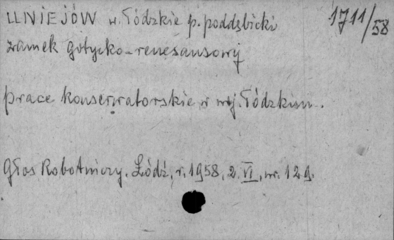 UNIEJÓW w. łódzkie p. poddębicki 1711/58
zamek gotycko-renesansowy
prace konserwatorskie w woj. łódzkim.
Głos Robotniczy. Łódź, r. 1958, 2. VI, nr. 129.